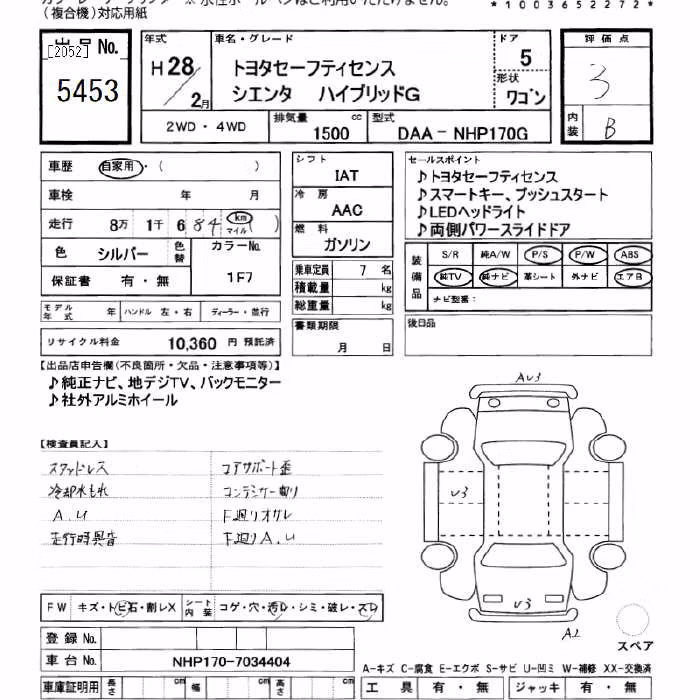 (複合機)対応用紙
*1003652272*
出品No. [2052] 5453
年式 H28/2月
車名・グレード トヨタセーフティセンス
シエンタ ハイブリッドG
ドア 5
形状 ワゴン
評価点 3
内装 B
2WD・4WD 排気量 1500 cc 型式 DAA-NHP170G
車歴 自家用・( )
車検 年 月
走行 8万 1千 6 84 km マイル ( )
色 シルバー 色替 カラーNo. 1F7
保証書 有・無
モデル年式 年 ハンドル 左・右 ディーラー・並行
リサイクル料金 10,360 円 預託済
シフト IAT
冷房 AAC
燃料 ガソリン
乗車定員 7 名
積載量 kg
総重量 kg
書類期限
月 日
セールスポイント
♪トヨタセーフティセンス
♪スマートキー、プッシュスタート
♪LEDヘッドライト
♪両側パワースライドドア
装備品 S/R 純A/W P/S P/W ABS
純TV 純ナビ 革シート 外ナビ エアB
ナビ型番:
後日品
【出品店申告欄(不良箇所・欠品・注意事項等)】
♪純正ナビ、地デジTV、バックモニター
♪社外アルミホイール
【検査員記入】
スタッドレス
冷却水もれ
A.U
走行時異音
コアサポート歪
コンデンサー曲り
下廻りオサレ
下廻りA.U
AU3
U3
U3
A2
スペア
FW キズ・トビ石・割レX シート内装 コゲ・穴・汚レ・シミ・破レ・スレ
登録No.
車台No. NHP170-7034404
車庫証明用 長さ cm 幅 cm 高さ cm
A-キズ C-腐食 E-エクボ S-サビ U-凹ミ W-補修 XX-交換済
工具 有・無 ジャッキ 有・無